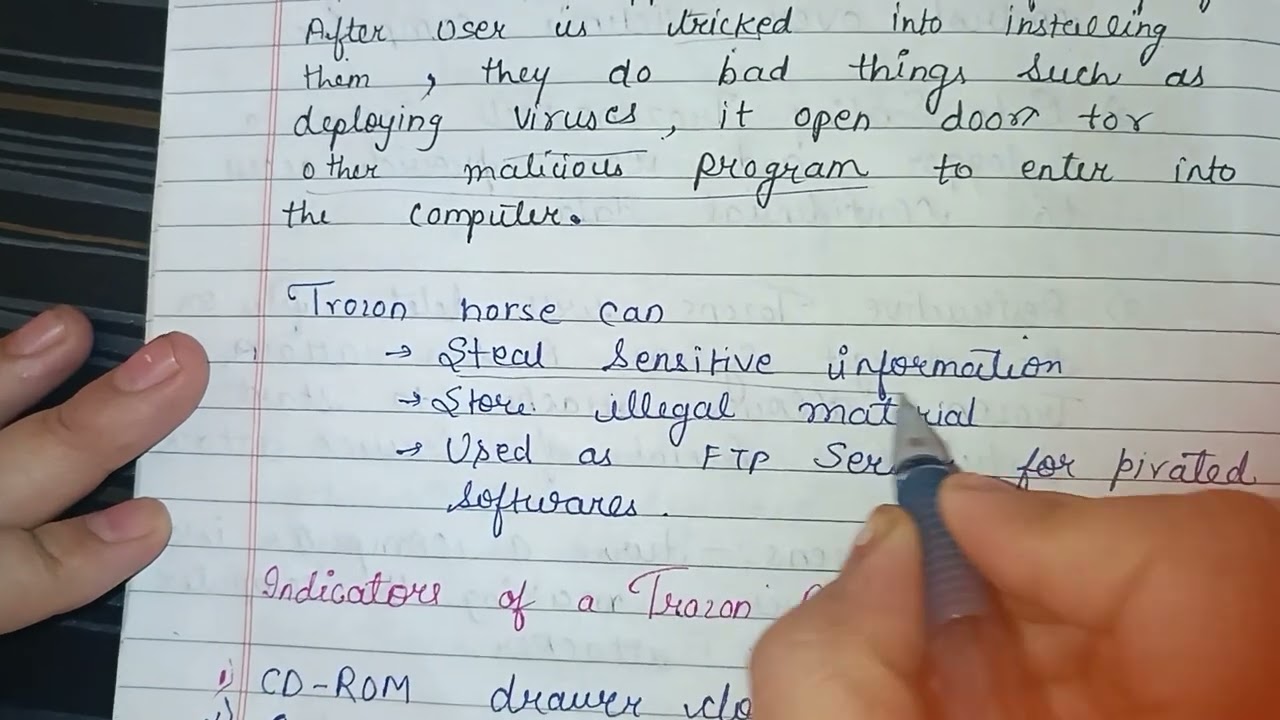 After User is tricked into installing
them , they do bad things such as
deploying viruses , it open door for
other malicious program to enter into
the computer.
Trozon horse can
→ Steal Sensitive information
→ Store illegal material
→ Used as FTP for pirated
softwares .
Indicators of a Trozon
i) CD-ROM drawer